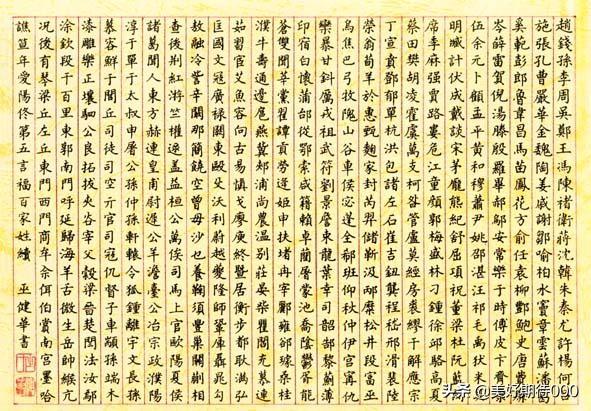 趙錢孫李周吳鄭王馮陳褚衛蔣沈韓朱秦尤許楊何呂
施張孔曹嚴華金魏陶姜戚謝鄒喻柏水竇章雲蘇潘葛
奚範彭郎魯韋昌馬苗鳳花方俞任袁柳酆鮑史唐費廉
岑薛雷賀倪湯滕殷羅畢郝鄔安常樂于時傅皮卞齊康
伍余元卜顧孟平黃和穆蕭尹姚邵湛汪祁毛禹狄米貝
明臧計伏成戴談宋茅龐熊紀舒屈項祝董梁杜阮藍閔
席季麻強賈路婁危江童顏郭梅盛林刁鍾徐邱駱高夏
蔡田樊胡凌霍虞萬支柯昝管盧莫經房裘繆干解應宗
丁宣賁鄧郁單杭洪包諸左石崔吉鈕龔程嵇邢滑裴陸
榮翁荀羊於惠甄麴家封芮羿儲靳汲邴糜松井段富巫
烏焦巴弓牧隗山谷車侯宓蓬全郗班仰秋仲伊宮甯仇
欒暴甘鈄厲戎祖武符劉景詹束龍葉幸司韶郜黎薊薄
印宿白懷蒲邰從鄂索咸籍賴卓藺屠蒙池喬陰鬱胥能
蒼雙聞莘黨翟譚貢勞逄姬申扶堵冉宰酈雍郤璩桑桂
濮牛壽通邊扈燕冀郟浦尚農溫別莊晏柴瞿閻充慕連
茹習宦艾魚容向古易慎戈廖庾終暨居衡步都耿滿弘
匡國文寇廣祿闕東歐殳沃利蔚越夔隆師鞏厙聶晁勾
敖融冷訾辛闞那簡饒空曾毋沙乜養鞠須豐巢關蒯相
查後荊紅游竺權逯蓋益桓公萬俟司馬上官歐陽夏侯
諸葛聞人東方赫連皇甫尉遲公羊澹臺公冶宗政濮陽
淳于單于太叔申屠公孫仲孫軒轅令狐鍾離宇文長孫
慕容鮮于閭丘司徒司空亓官司寇仉督子車顓孫端木
漆雕樂正壤駟公良拓拔夾谷宰父榖梁晉楚閆法汝鄢
涂欽段干百里東郭南門呼延歸海羊舌微生岳帥緱亢
況後有琴梁丘左丘東門西門商牟佘佴伯賞南宮墨哈
譙笪年愛陽佟第五言福百家姓續 巫健華書
头条 @美好期待000